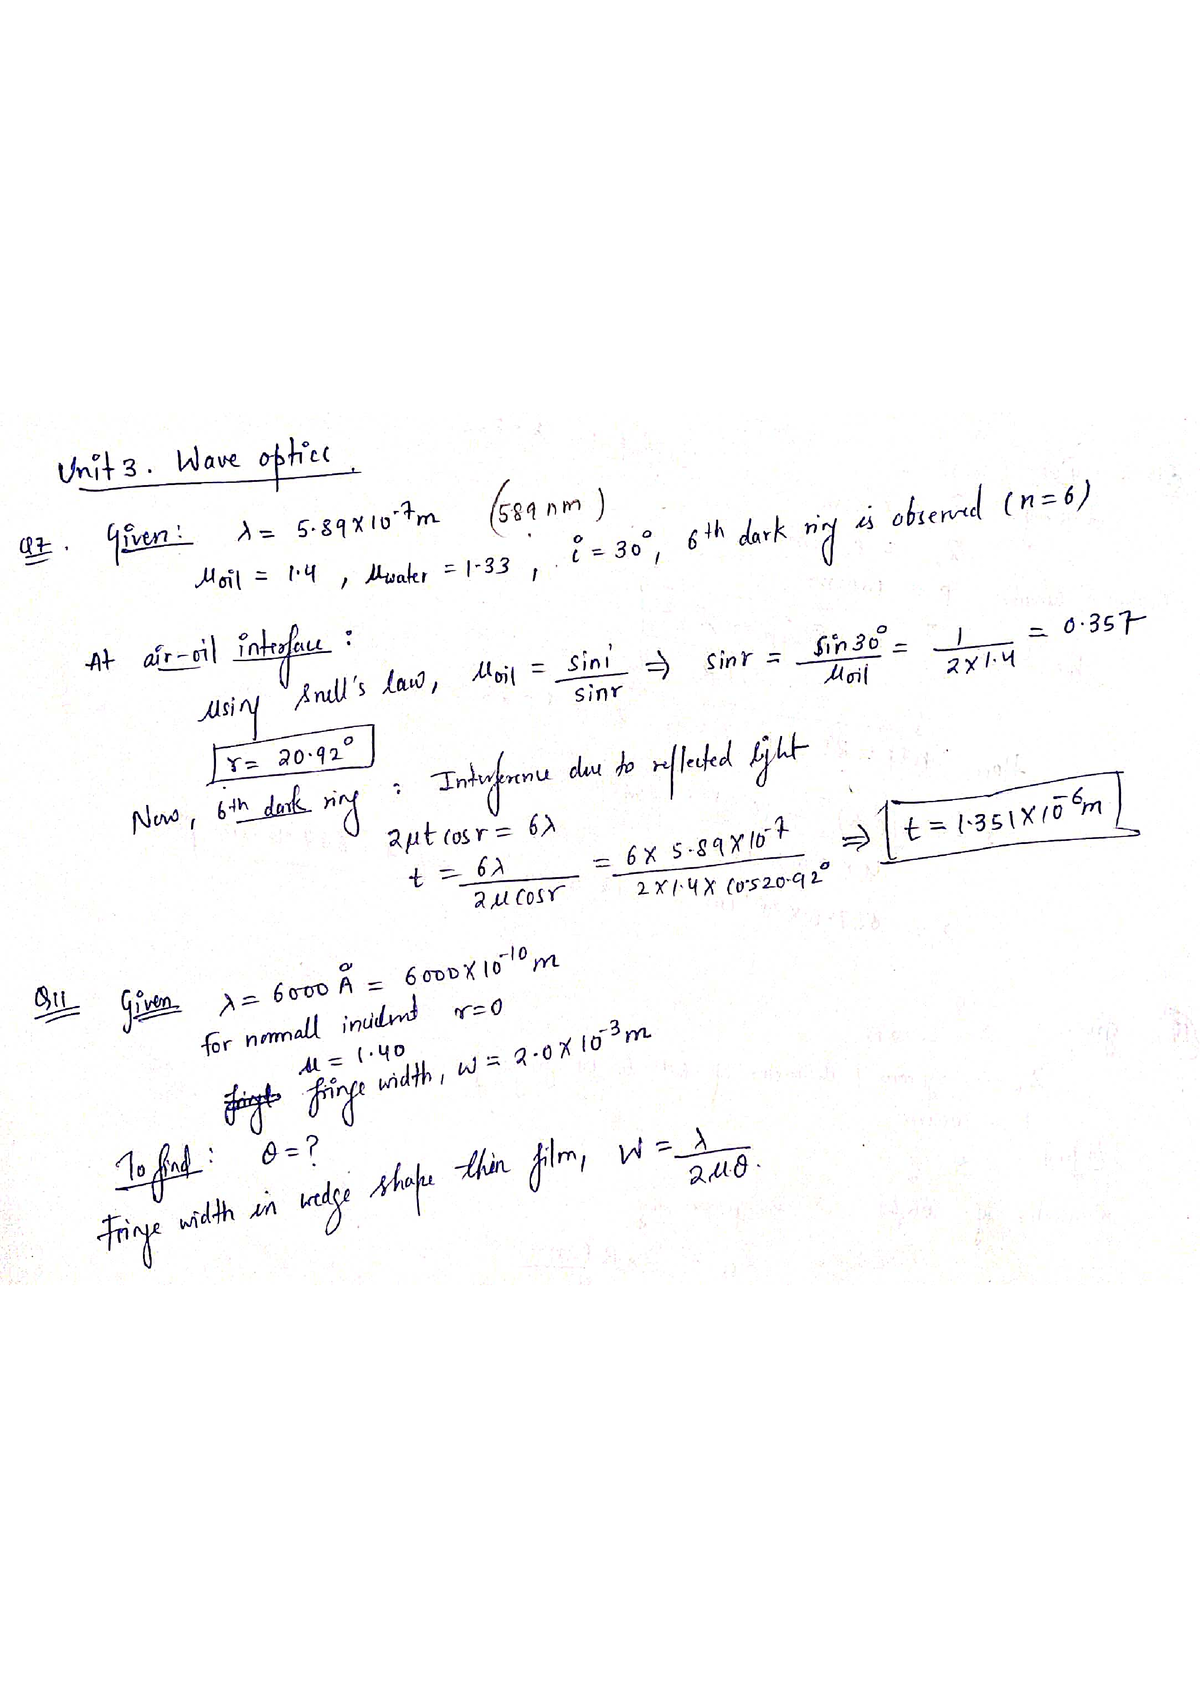 Unit 3. Wave optics.
Q7. Given: λ = 5.89×10⁻⁷m (589 nm)
μoil = 1.4 , μwater = 1.33 , i = 30°, 6th dark ring is observed (n=6)
At air-oil interface :
using Snell's law, μoil = sin i / sin r ⇒ sin r = sin 30° / μoil = 1 / 2×1.4 = 0.357
r = 20.92°
Now, 6th dark ring : Interference due to reflected light
2μt cos r = 6λ
t = 6λ / 2μ cos r = 6×5.89×10⁻⁷ / 2×1.4×cos20.92° ⇒ t = 1.351×10⁻⁶m
Q11 Given λ = 6000 Å = 6000×10⁻¹⁰ m
for normall incident r=0
μ = 1.40
fringe width, w = 2.0×10⁻³m
To find: θ = ?
Fringe width in wedge shape thin film, W = λ / 2μθ.